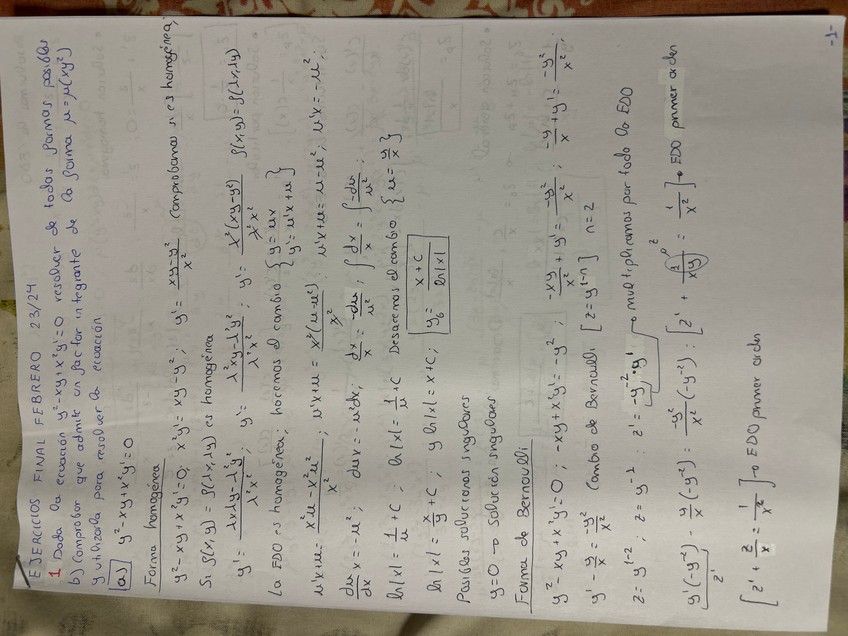 EJERCICIOS FINAL FEBRERO 23/24
1 Dada la ecuación y²-xy+x²y'=0 resolver de todas formas posibles
b) Comprobar que admite un factor integrante de la forma μ=μ(xy²)
y utilizarla para resolver la ecuación
(a) y²-xy+x²y'=0
Forma homogénea
y²-xy+x²y'=0; x²y'=xy-y²; y'= (xy-y²)/x² Comprobamos si es homogénea;
Si f(x,y) = f(λx,λy) es homogénea
y'= (λxλy-λ²y²)/(λ²x²); y'= (λ²xy-λ²y²)/(λ²x²); y'= (λ²(xy-y²))/(λ²x²) f(x,y)=f(λx,λy)
La EDO es homogénea; hacemos el cambio { y=ux
y'=u'x+u }
u'x+u= (x²u-x²u²)/x²; u'x+u= (x²(u-u²))/x²; u'x+u=u-u²; u'x=-u²;
du/dx x=-u²; dux=-u²dx; dx/x = -du/u²; ∫dx/x = ∫-du/u²;
ln|x|= 1/u +C; ln|x|= 1/u +C Desacemos el cambio {u= y/x}
ln|x|= x/y +C; y ln|x|=x+C; y_G= (x+C)/ln|x|
Posibles soluciones singulares
y=0 → solución singulares
Forma de Bernoulli
y²-xy+x²y'=0; -xy+x²y'=-y²; -xy/x² + y'= -y²/x²; -y/x + y'= -y²/x²;
y'- y/x = -y²/x² Cambio de Bernoulli [z=y^(1-n)] n=2
z=y^(1-2); z=y^(-1); z'=-y^(-2)·y' → multiplicamos por toda la EDO
y'(-y^(-2)) - y/x (-y^(-2)) = -y²/x² (-y^(-2)); [z' + 1/(xy) = 1/x²] → EDO primer orden
z'
z
[z' + z/x = 1/x²] → EDO primer orden
-1-